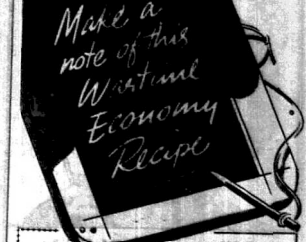 Make a
note of this
Wartime
Economy
Recipe